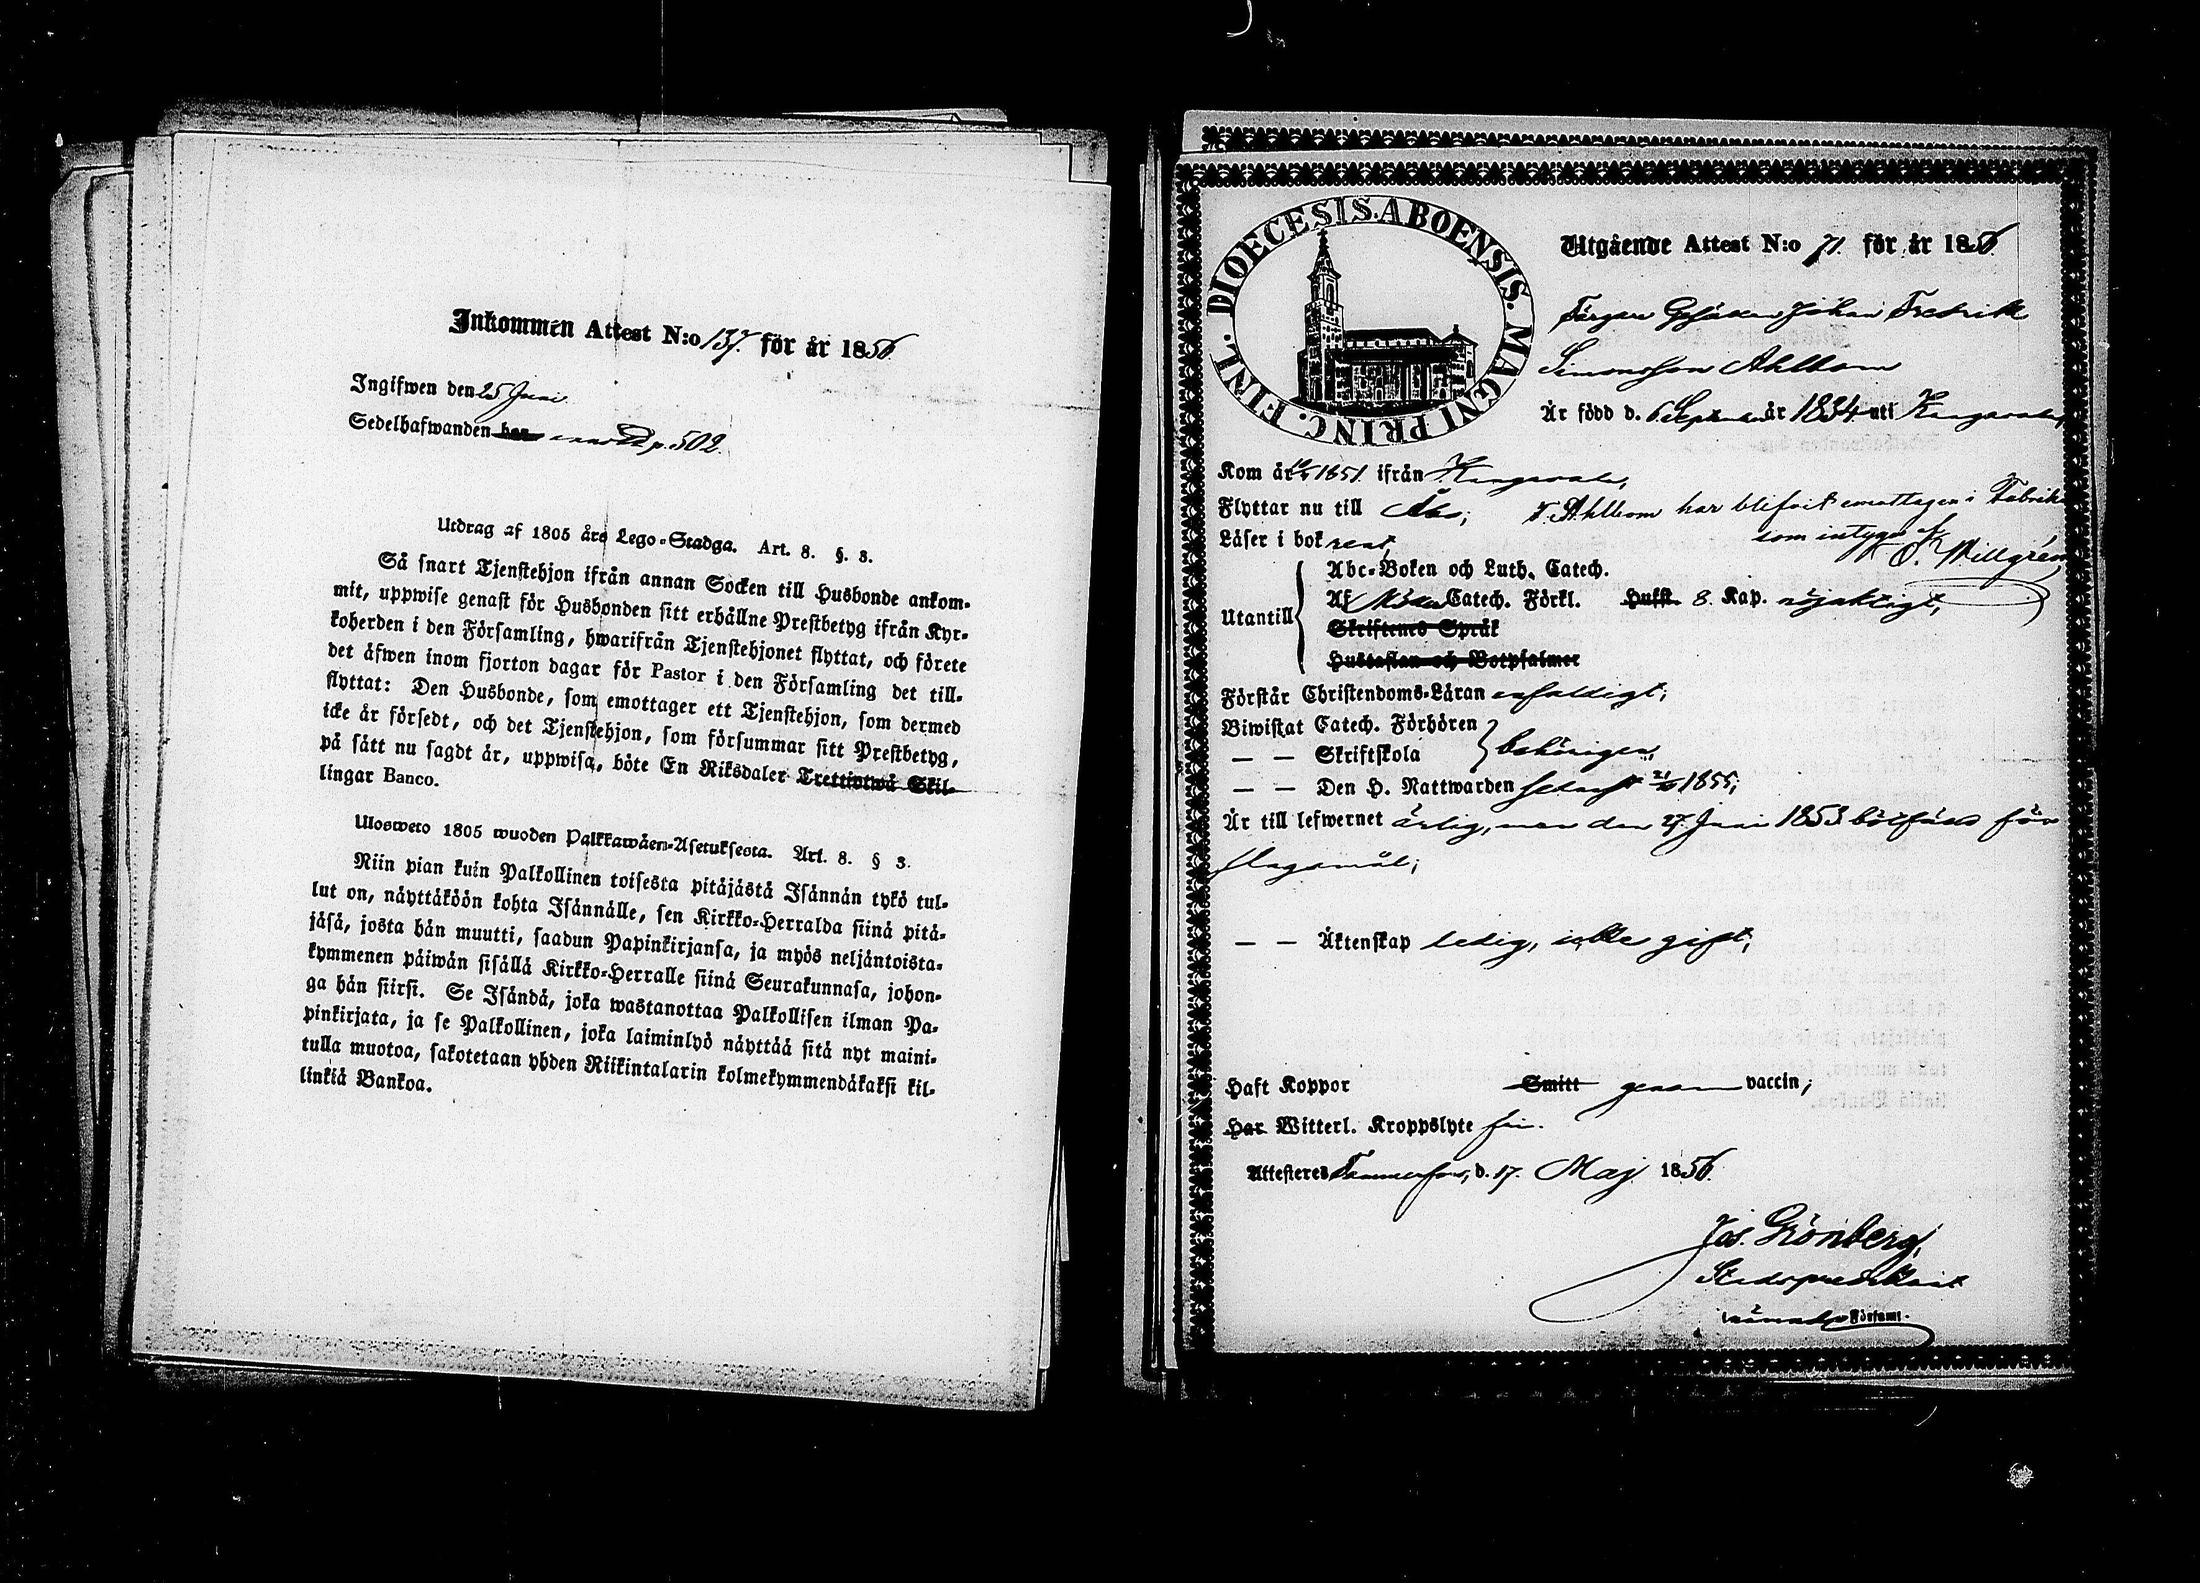 Inkommen Attest N:o 137. för år 1856
Ingifwen den 25 Juni
Sedelhafwanden har p. 502.
Utdrag af 1805 års Lego-Stadga. Art. 8. §. 3.
Så snart Tjenstehjon ifrån annan Socken till Husbonde ankom-
mit, uppwise genast för Husbonden sitt erhållne Prestbetyg ifrån Kyr-
koherden i den Församling, hwarifrån Tjenstehjonet flyttat, och förete
det äfwen inom fjorton dagar för Pastor i den Församling det till-
flyttat: Den Husbonde, som emottager ett Tjenstehjon, som dermed
icke är försedt, och det Tjenstehjon, som försummar sitt Prestbetyg,
på sätt nu sagdt är, uppwisa, böte En Riksdaler Trettiotwå Skil-
lingar Banco.
Ulosweto 1805 wuoden Palkkawäen-Asetuksesta. Art. 8. § 3.
Niin pian kuin Palkollinen toisesta pitäjästä Isännän tykö tul-
lut on, näyttäköön kohta Isännälle, sen Kirkko-Herralda siinä pitä-
jäsä, josta hän muutti, saadun Papinkirjansa, ja myös neljäntoista-
kymmenen päiwän sisällä Kirkko-Herralle siinä Seurakunnasa, johon-
ga hän siirsi. Se Isändä, joka wastanottaa Palkollisen ilman Pa-
pinkirjata, ja se Palkollinen, joka laiminlyö näyttää sitä nyt maini-
tulla muotoa, sakotetaan yhden Riikintalarin kolmekymmendäkaksi kil-
linkiä Bankoa.
DIOECESIS. ABOENSIS. MAGNI PRINC. FINL.
Utgående Attest N:o 71. för år 1856.
Färgare Gesällen Johan Fredrik
Simonsson Ahlbom
Är född d. 6 September år 1834 uti Kangasala,
Kom år 1851. ifrån Kangasala,
Flyttar nu till Åbo; F. Ahlbom har blifvit emottagen i Fabrik
som intygas
Willgren
Läser i bok rent,
Utantill
Abc-Boken och Luth. Catech.
Af Catech. Förkl. Hufst. 8. Kap. nöjaktigt,
Skriftenes Språk
Hustaflan och Botpsalmer
Förstår Christendoms-Läran enfaldigt;
Biwistat Catech. Förhören
— — Skriftskola behörigen,
— — Den H. Nattwarden senast 21/10 1855;
Är till lefwernet ärlig, men den 27. Juni 1853 bötfäld för
slagsmål;
— — Äktenskap ledig, icke gift;
Haft Koppor Smitt genom vaccin;
Har Witterl. Kroppslyte fri.
Attesteras Tammerfors, d. 17. Maj 1856.
Jos. Grönberg,
Stadspredikant
Församl.